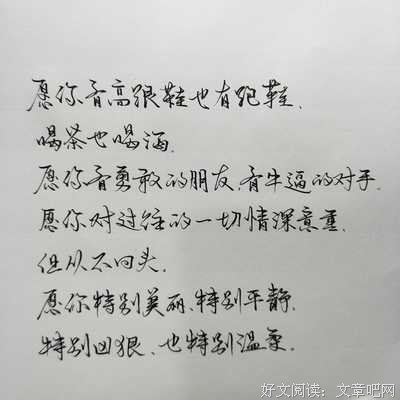 愿你有高跟鞋也有跑鞋.
喝茶也喝酒.
愿你有勇敢的朋友,有牛逼的对手.
愿你对过往的一切情深意重.
但从不回头.
愿你特别美丽、特别平静.
特别凶狠、也特别温柔.
好文阅读：文章吧网